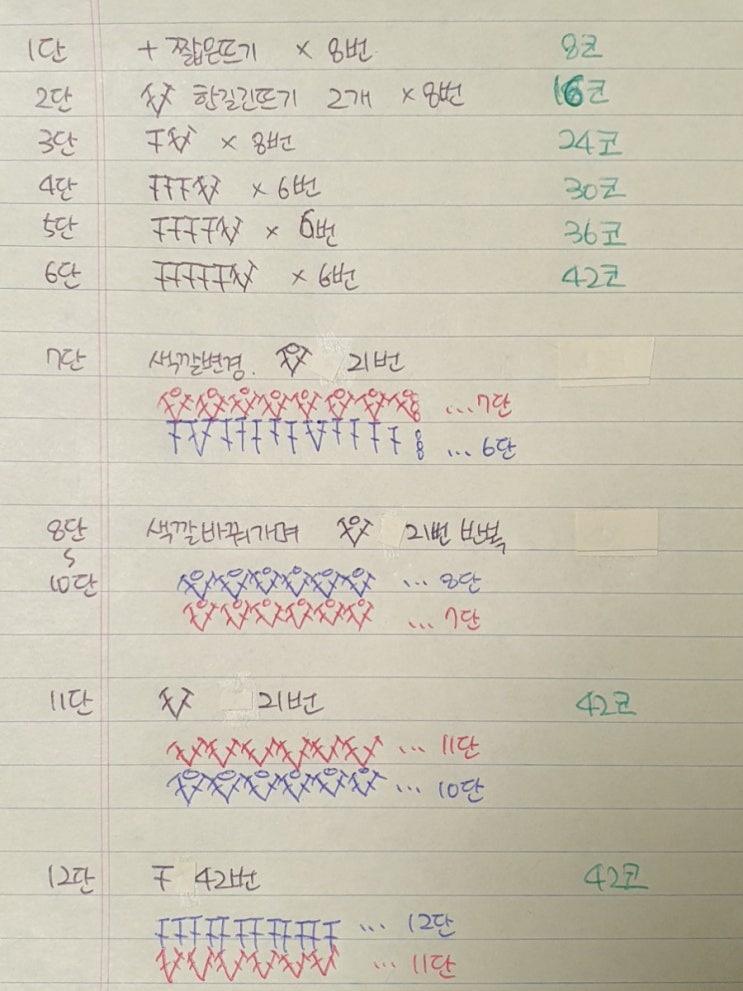 1단 + 짧은뜨기 × 8번 8코
2단 한길긴뜨기 2개 × 8번 16코
3단 × 8번 24코
4단 × 6번 30코
5단 × 6번 36코
6단 × 6번 42코
7단 색깔변경. 21번
...7단
...6단
8단 색깔바꿔가며 21번 반복
10단 ...8단
...7단
11단 21번 42코
...11단
...10단
12단 42번 42코
...12단
...11단